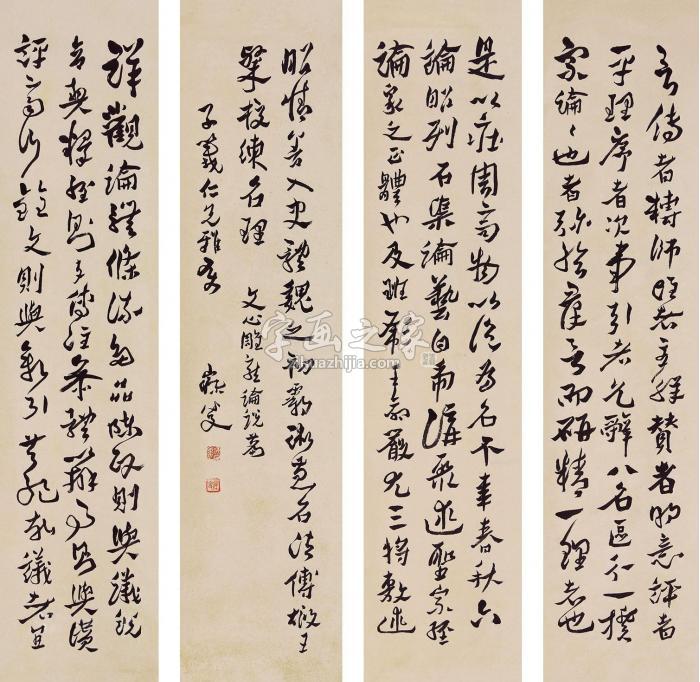 詳觀論體條流多品陳政則與議說
合契釋經則與傳注參體辨史則與讚
評齊行銓文則與敘引共紀故議者宜
言傳者轉師注者主解贊者明意評者
平理序者次事引者胤辭八名區分一揆
宗論々也者彌綸羣言而研精一理者也
是以莊周齊物以論為名不韋春秋六
論昭列石渠論藝白虎講聚述聖宗經
論家之正體也及班彪王命嚴尤三將敷述
昭情善入史體魏之初霸術兼名法傅嘏王
粲校練名理 文心雕龍論說篇
子羲仁兄雅屬
字画之家
zihuazhijia.com